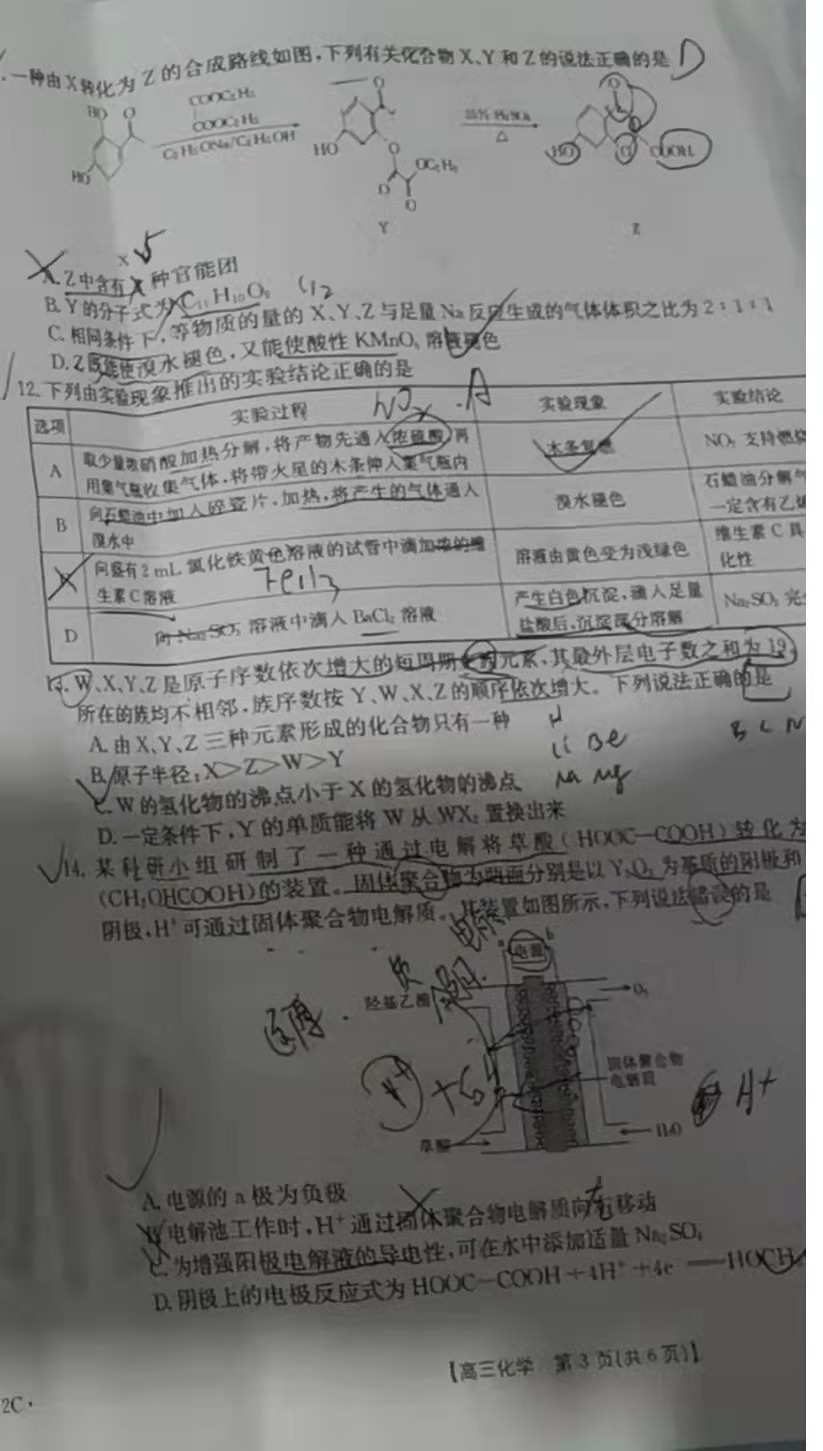 .一种由X转化为Z的合成路线如图,下列有关化合物X、Y和Z的说法正确的是 D
HO O
HO
COOC₂H₅
COOC₂H₅
C₂H₅ONa/C₂H₅OH
O
HO
O
OC₂H₅
O
O
Y
△
O
HO
O
COOH
Z
X 5
A.Z中含有 种官能团
B.Y的分子式为C₁₁H₁₀O₆ C12
C.相同条件下,等物质的量的X、Y、Z与足量Na反应生成的气体体积之比为2:1:1
D.Z既能使溴水褪色,又能使酸性KMnO₄溶液褪色
12.下列由实验现象推出的实验结论正确的是
NOx . A
选项 实验过程 实验现象 实验结论
A 取少量浓硝酸加热分解,将产物先通入浓硫酸,再 木条复燃 NO₂支持燃烧
用集气瓶收集气体,将带火星的木条伸入集气瓶内
B 向石蜡油中加入碎瓷片,加热,将产生的气体通入 溴水褪色 石蜡油分解气
溴水中 一定含有乙烯
向盛有2 mL氯化铁黄色溶液的试管中滴加浓的维 溶液由黄色变为浅绿色 维生素C具
生素C溶液 FeCl3 化性
D 向Na₂SO₃溶液中滴入BaCl₂溶液 产生白色沉淀,滴入足量 Na₂SO₃完全
盐酸后,沉淀部分溶解
13.W、X、Y、Z是原子序数依次增大的短周期主族元素,其最外层电子数之和为19,
所在的族均不相邻,族序数按Y、W、X、Z的顺序依次增大。下列说法正确的是
A.由X、Y、Z三种元素形成的化合物只有一种
H
Li Be
B C N
B.原子半径:X>Z>W>Y
C.W的氢化物的沸点小于X的氢化物的沸点
Na Mg
D.一定条件下,Y的单质能将W从WX₂置换出来
14.某科研小组研制了一种通过电解将草酸(HOOC—COOH)转化为
(CH₂OHCOOH)的装置。固体聚合物两面分别是以YxOz为基质的阳极和
阴极,H⁺可通过固体聚合物电解质。其装置如图所示,下列说法错误的是
a 电源 b
羟基乙酸
O₂
固体聚合物
电解质
H₂O
草酸
H+
A.电源的a极为负极
B.电解池工作时,H⁺通过固体聚合物电解质向 移动
C.为增强阳极电解液的导电性,可在水中添加适量Na₂SO₄
D.阴极上的电极反应式为HOOC—COOH+4H⁺+4e⁻══HOCH
【高三化学 第3页(共6页)】
2C·